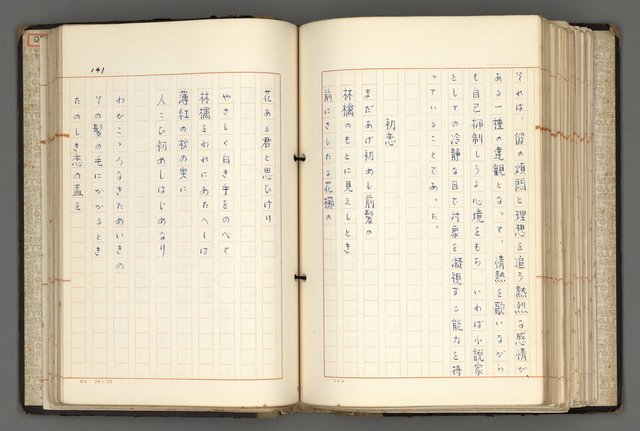 それは、彼の煩悶と理想を追う熱烈な感情が、
ある一種の達観となって、情熱を歌いながら
も自己抑制しうる心境をもち、いわば小説家
としての冷静な目で対象を凝視する能力を持
っていることであった。
初恋
まだあげ初めし前髪の
林檎のもとに見えしとき
前にさしたる花櫛の
花ある君と思ひけり
やさしく白き手をのべて
林檎をわれにあたへしは
薄紅の秋の実に
人こひ初めしはじめなり
わがこゝろなきためいきの
その髪の毛にかかるとき
たのしき恋の盃を
141